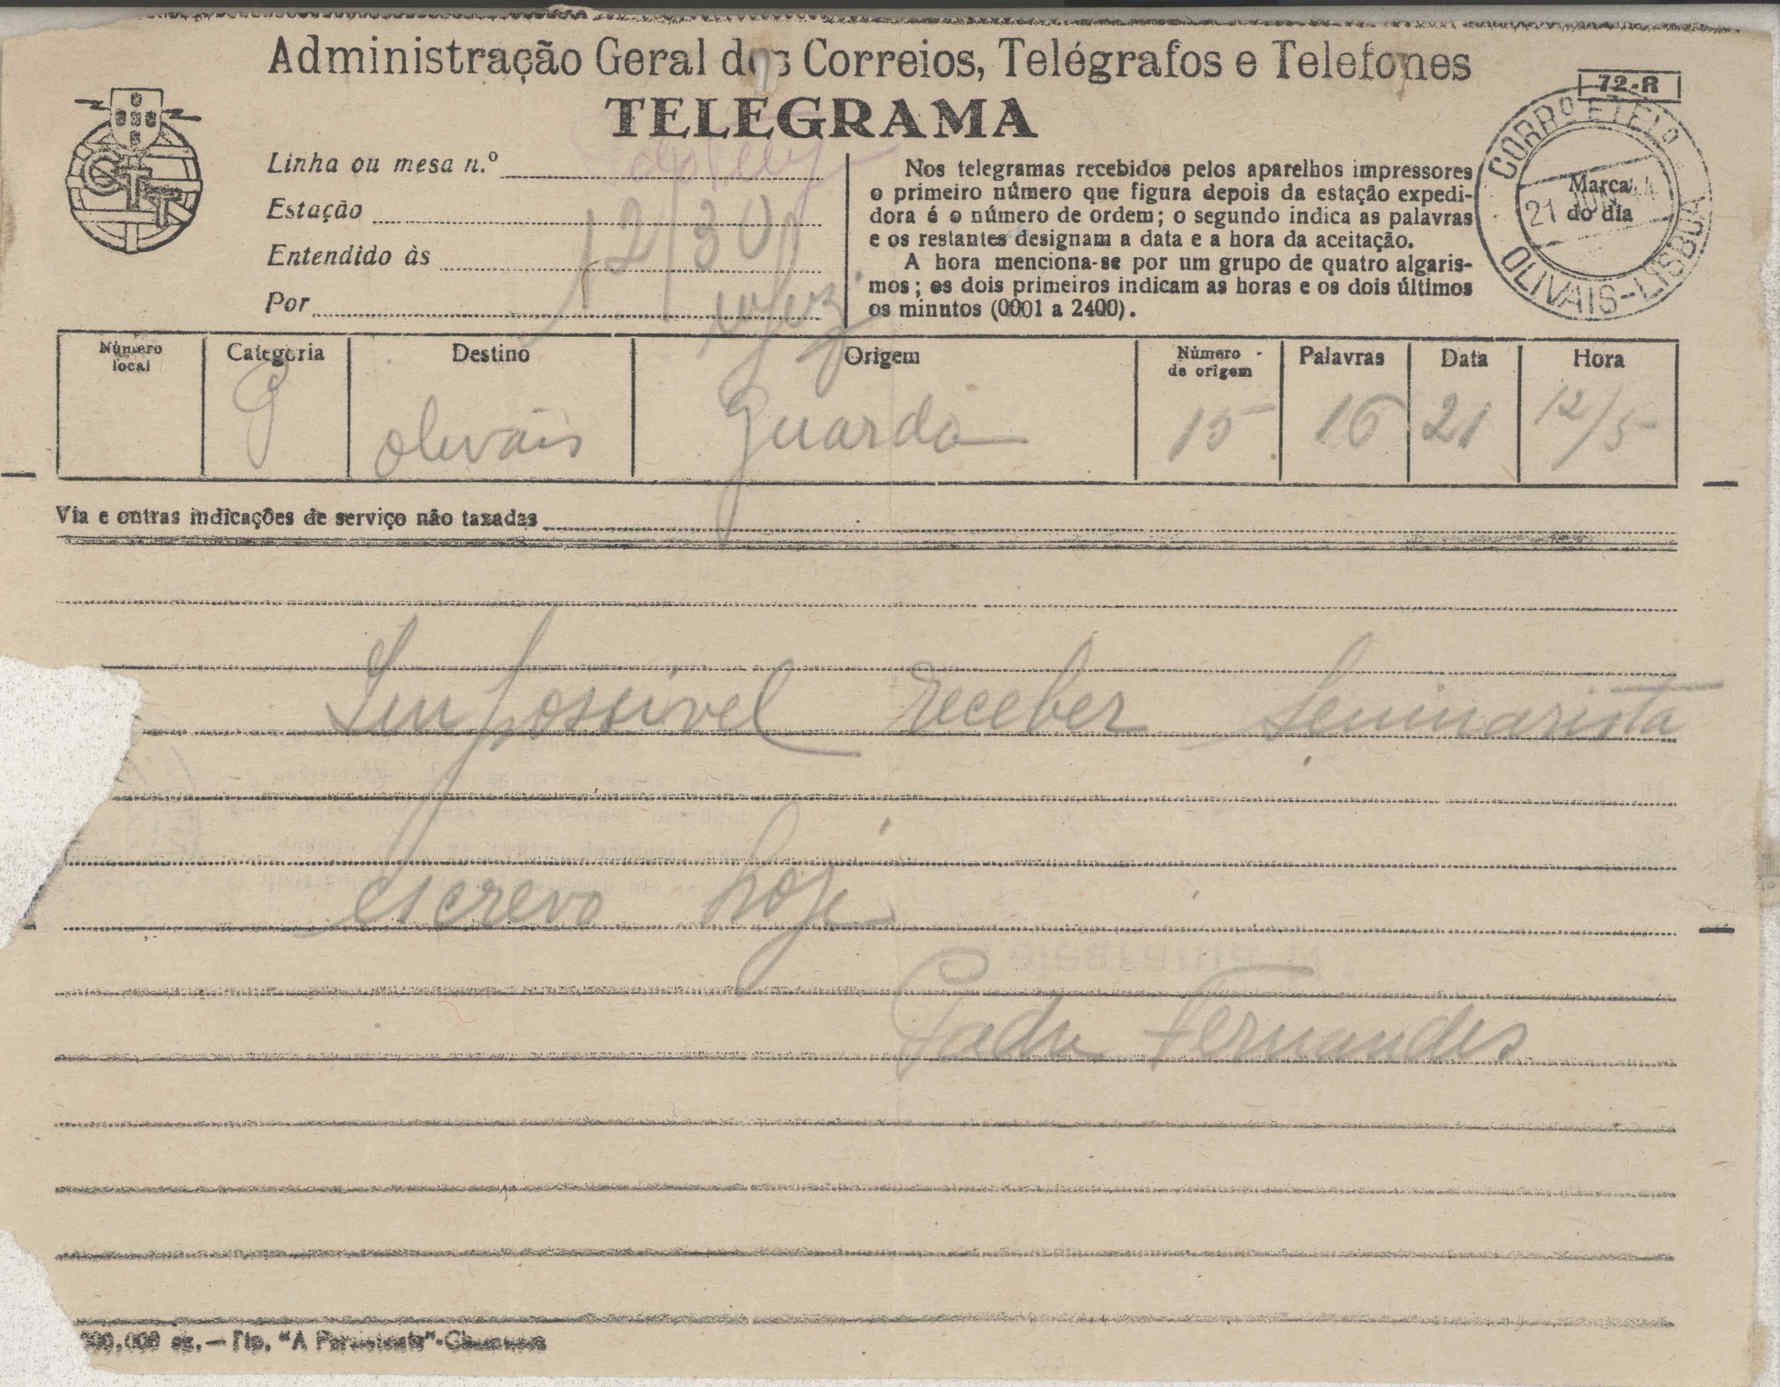 Administração Geral dos Correios, Telégrafos e Telefones
TELEGRAMA
72-R
CORRO E TELO
OLIVAIS-LISBOA
21
Marca
do dia
Linha ou mesa n.º
Estação
Entendido às
12/30
Por
Nos telegramas recebidos pelos aparelhos impressores
o primeiro número que figura depois da estação expedi-
dora é o número de ordem; o segundo indica as palavras
e os restantes designam a data e a hora da aceitação.
A hora menciona-se por um grupo de quatro algaris-
mos; os dois primeiros indicam as horas e os dois últimos
os minutos (0001 a 2400).
Número local Categoria Destino Origem Número de origem Palavras Data Hora
Olivais Guarda 15 16 21 12/5
Via e outras indicações de serviço não taxadas
Impossivel receber Seminarista
escrevo hoje
Padre Fernandes
000.000 ex. — Tip.